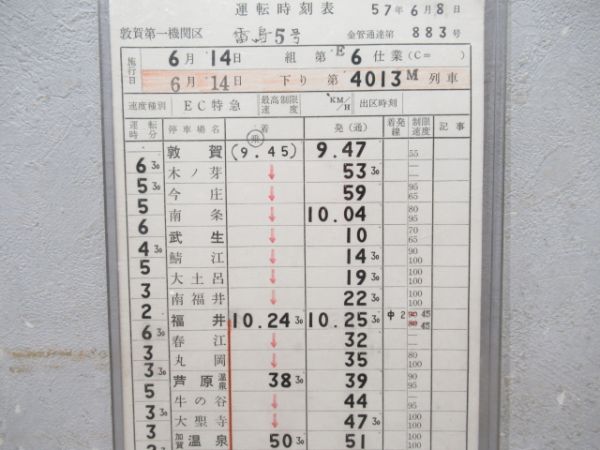 運転時刻表 57年6月8日
敦賀第一機関区 雷鳥5号 金管通達第 883号
施行日 6月14日 組 第E6仕業(C= )
6月14日 下り 第4013M列車
速度種別 EC特急 最高制限速度 KM/H 出区時刻
運転時分 停車場名 着 発(通) 着発線 制限速度 記事
敦賀 乗 (9.45) 9.47 55
6 30 木ノ芽 ↓ 53 30
5 30 今庄 ↓ 59 95 65
5 南条 ↓ 10.04 80 95
6 武生 ↓ 10 70 65
4 30 鯖江 ↓ 14 30 90 100
5 大土呂 ↓ 19 30 100 100
3 南福井 ↓ 22 30 100
2 福井 10.24 30 10.25 30 中2 45 45
6 30 春江 ↓ 32 100
3 丸岡 ↓ 35 80 100
3 30 芦原温泉 38 30 39 90 95
5 牛の谷 ↓ 44 95
3 30 大聖寺 ↓ 47 30 100 100
2 加賀温泉 50 30 51 100